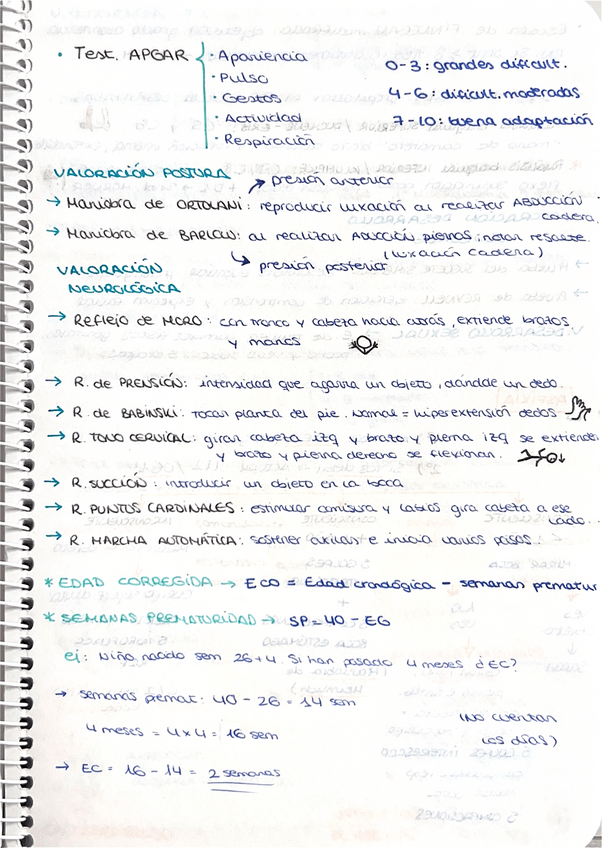 • Test APGAR
• Apariencia
• Pulso
• Gestos
• Actividad
• Respiración
0-3: grandes dificult.
4-6: dificult. moderadas
7-10: buena adaptación
VALORACIÓN POSTURA
↗ presión anterior
→ Maniobra de ORTOLANI: reproducir luxación al realizar ABDUCCIÓN
cadera.
→ Maniobra de BARLOW: al realizar ADUCCIÓN piernas, notar resalte.
(luxación cadera)
↳ presión posterior
VALORACIÓN
NEUROLÓGICA
→ Reflejo de MORO: con tronco y cabeza hacia atrás, extiende brazos
y manos
→ R. de PRENSIÓN: intensidad que agarra un objeto, dándole un dedo.
→ R. de BABINSKI: tocar planta del pie. Normal = hiperextensión dedos
→ R. TONO CERVICAL: girar cabeza izq y brazo y pierna izq se extienden
y brazo y pierna derecho se flexionan.
→ R. SUCCIÓN: introducir un objeto en la boca.
→ R. PUNTOS CARDINALES: estimular comisura y labios gira cabeza a ese
lado.
→ R. MARCHA AUTOMÁTICA: sostener axilas e inicia varios pasos.
* EDAD CORREGIDA → ECO = Edad cronológica - semanas prematur
* SEMANAS PREMATURIDAD → SP = 40 - EG
ej: Niño nacido sem 26+4. Si han pasado 4 meses d EC?
→ semanas premat: 40 - 26 = 14 sem
4 meses = 4 x 4 = 16 sem
(No cuentan
los días)
→ EC = 16 - 14 = 2 semanas